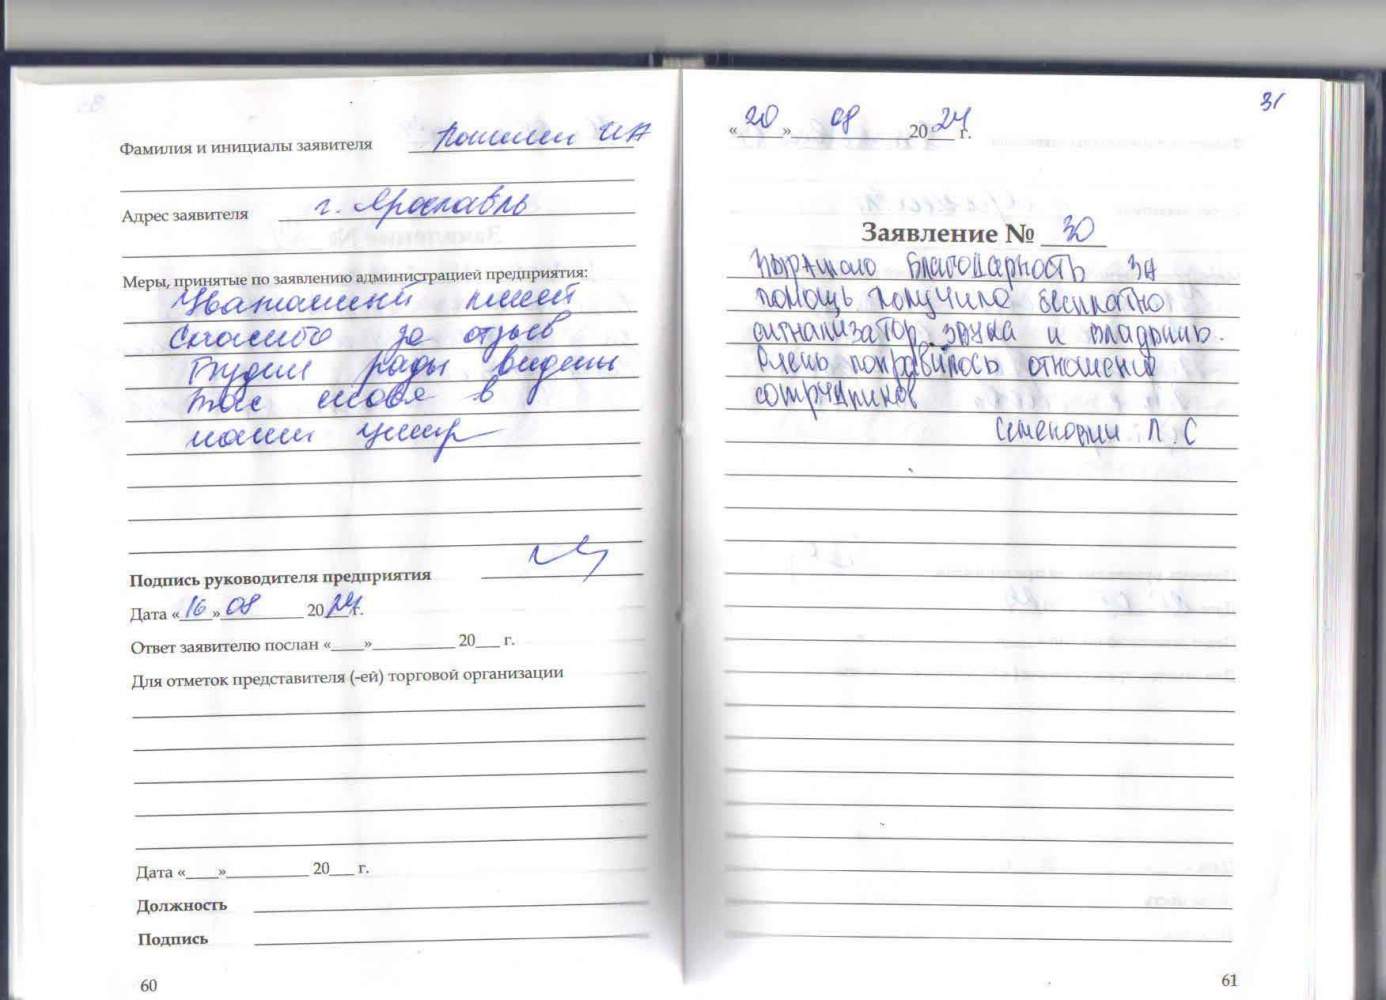 Фамилия и инициалы заявителя И А
Адрес заявителя г. Ярославль
Меры, принятые по заявлению администрацией предприятия:
Спасибо за отзыв
Будем рады видеть
снова в
нашем центр
Подпись руководителя предприятия
Дата «16» 08 2024 г.
Ответ заявителю послан «____»__________ 20___ г.
Для отметок представителя (-ей) торговой организации
Дата «____»__________ 20___ г.
Должность
Подпись
60
31
«20» 08 2024 г.
Заявление № 30
Выражаю благодарность за
помощь получила бесплатно
сигнализатор звука и
Очень понравилось отношение
сотрудников
Л.С
61